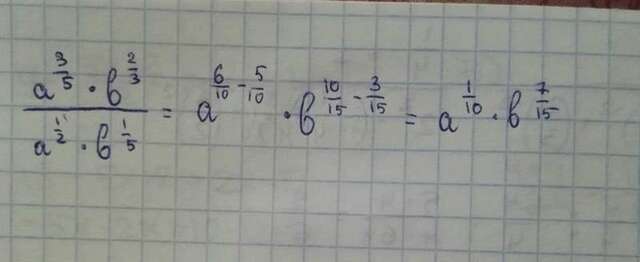 \frac{a^{\frac{3}{5}} \cdot b^{\frac{2}{3}}}{a^{\frac{1}{2}} \cdot b^{\frac{1}{5}}} = a^{\frac{6}{10} - \frac{5}{10}} \cdot b^{\frac{10}{15} - \frac{3}{15}} = a^{\frac{1}{10}} \cdot b^{\frac{7}{15}}